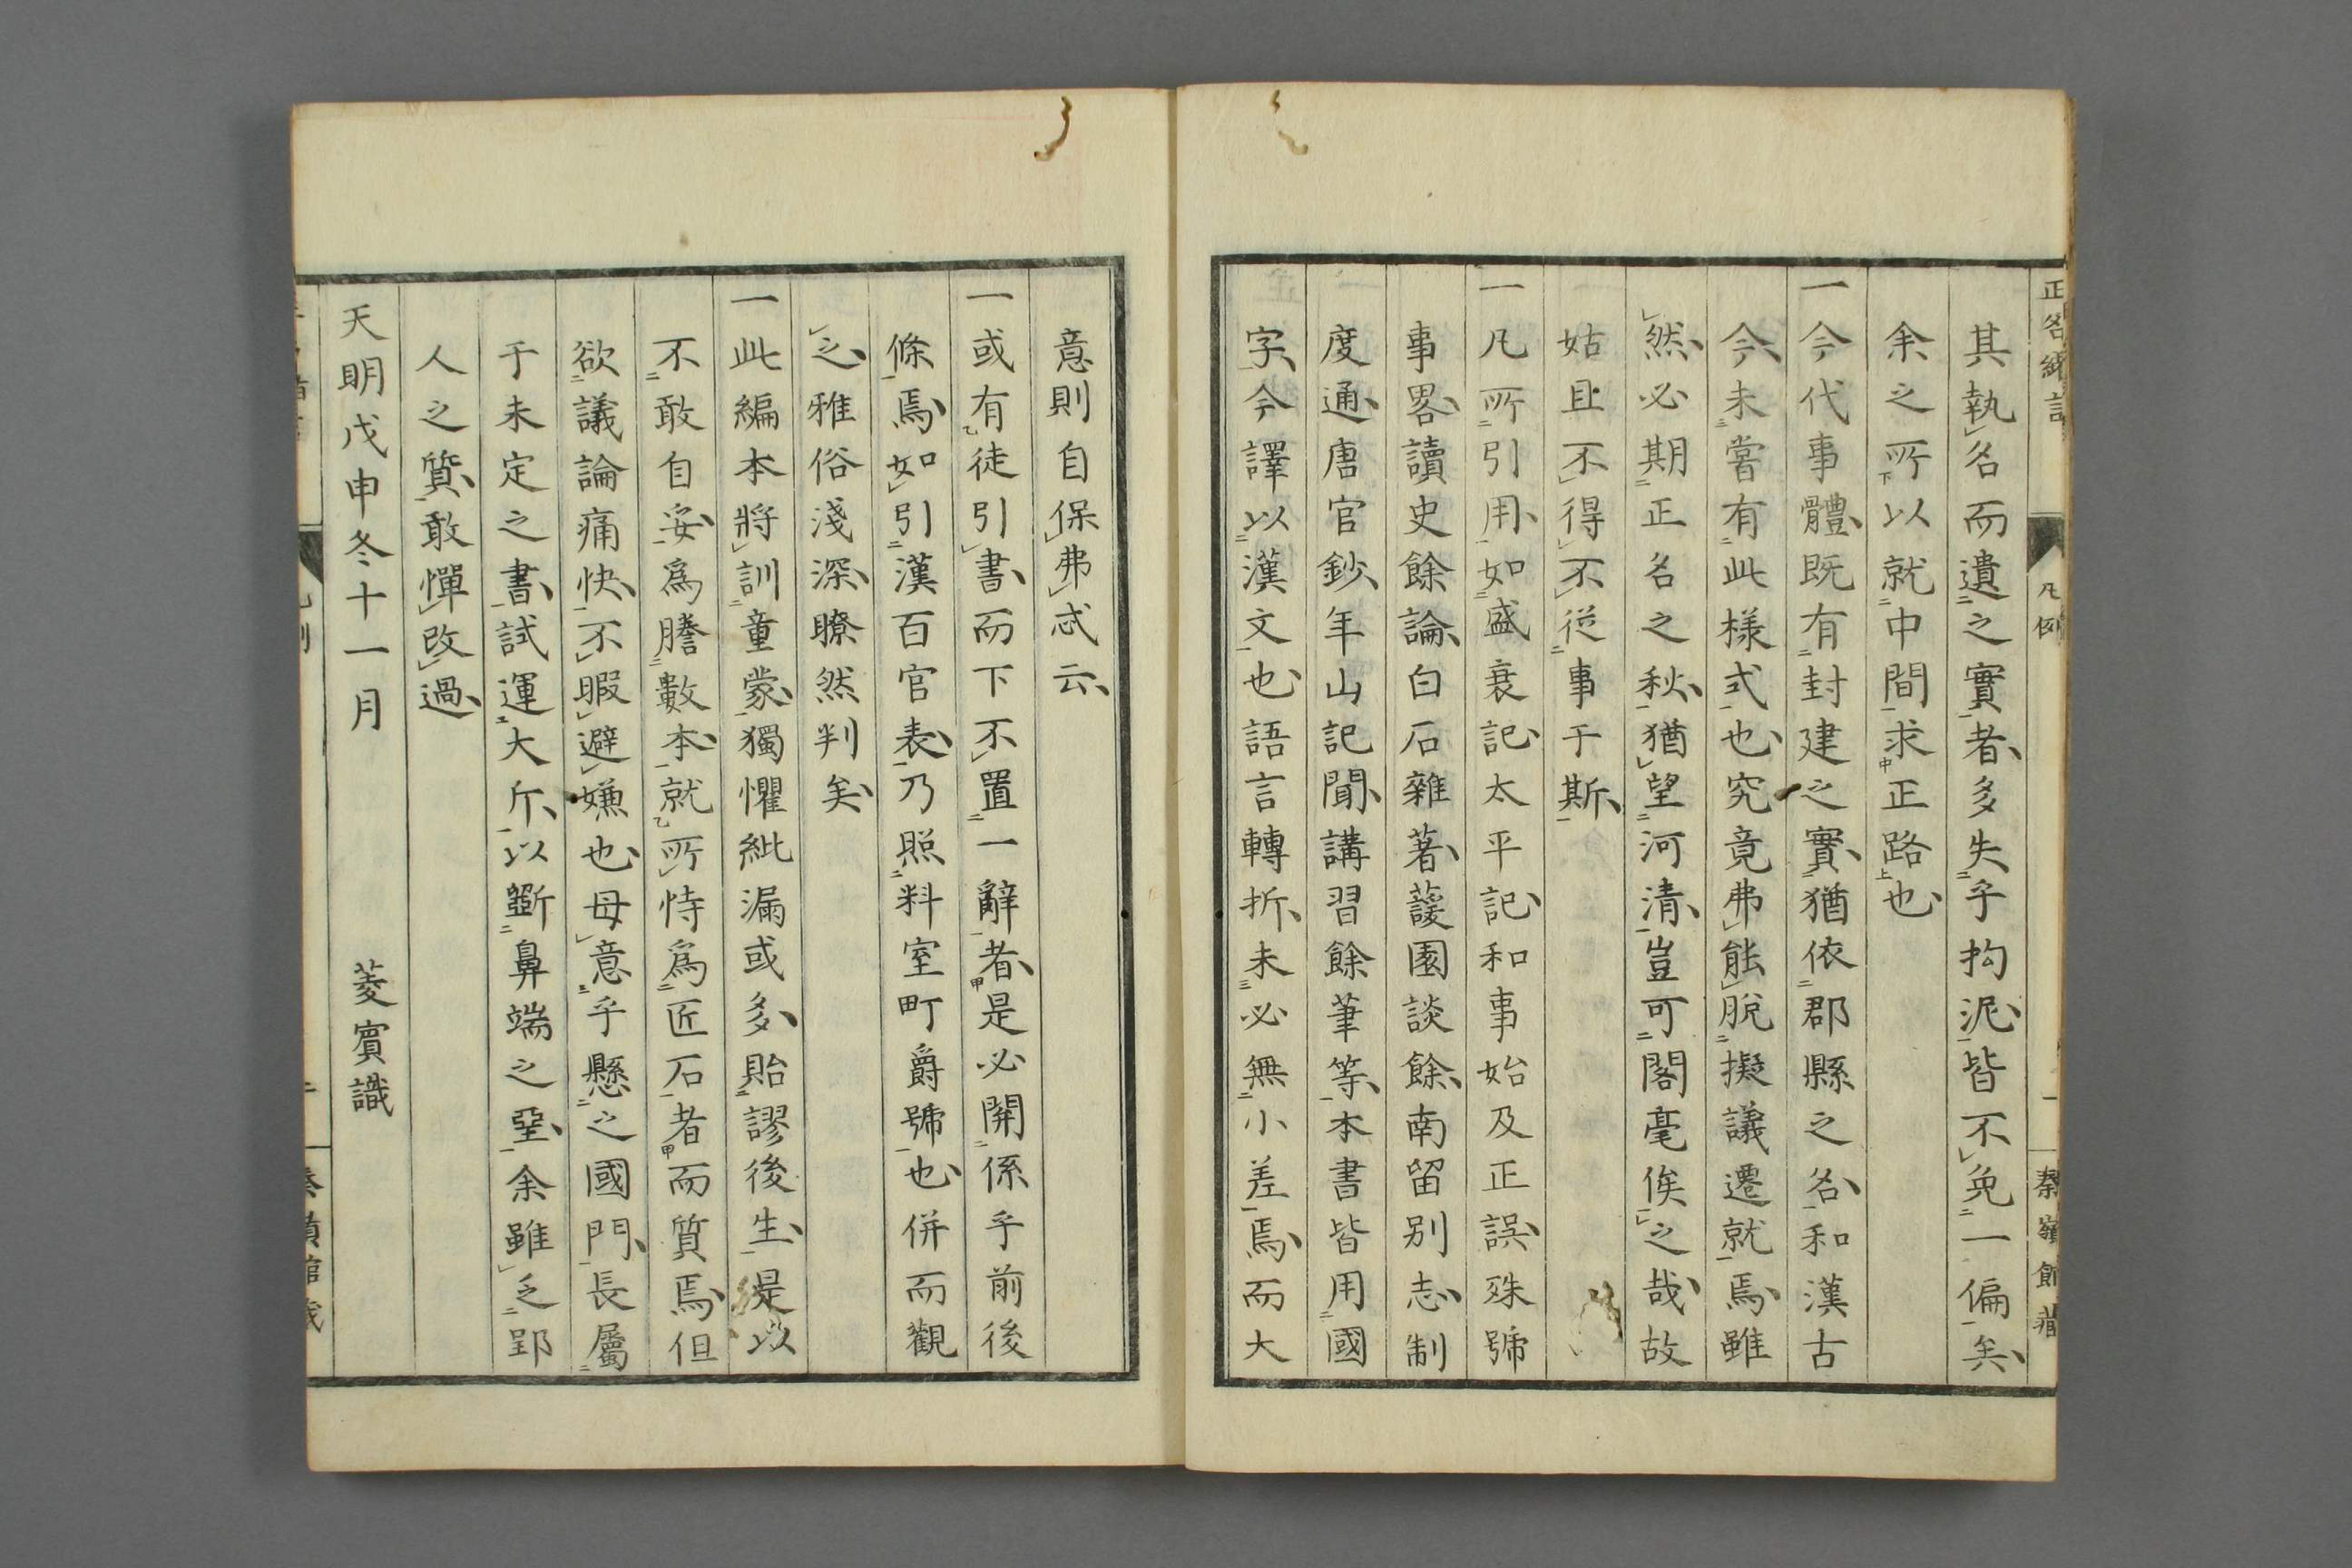 正名緒言 凡例 一 秦嶺館藏
其執名而遺之實者多失乎拘泥皆不免一偏矣
余之所以就中間求正路也
一今代事體既有封建之實猶依郡縣之名和漢古
今未嘗有此樣式也究竟弗能脫擬議遷就焉雖
然必期正名之秋猶望河清豈可閣毫俟之哉故
姑且不得不從事于斯
一凡所引用如盛衰記太平記和事始及正誤殊號
事畧讀史餘論白石雜著蘐園談餘南留別志制
度通唐官鈔年山記聞講習餘筆等本書皆用國
字今譯以漢文也語言轉折未必無小差焉而大
意則自保弗忒云
一或有徒引書而下不置一辭者是必關係乎前後
條焉如引漢百官表乃照料室町爵號也併而觀
之雅俗淺深瞭然判矣
一此編本將訓童蒙獨懼紕漏或多貽謬後生是以
不敢自妥爲謄數本就所恃爲匠石者而質焉但
欲議論痛快不暇避嫌也毋意乎懸之國門長屬
于未定之書試運大斤以斲鼻端之堊余雖乏郢
人之質敢憚改過
天明戊申冬十一月 菱賓識